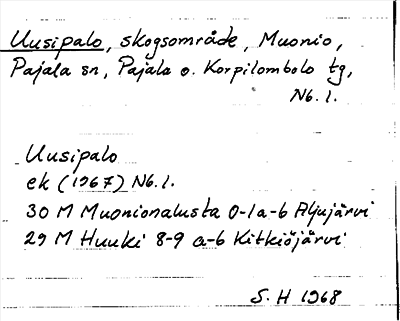 Uusipalo, skogsområde, Muonio,
Pajala sn, Pajala o. Korpilombolo tg,
Nb. l.
Uusipalo
ek (1967) Nb. l.
30 M Muonionalusta 0-1 a-b Äljujärvi
29 M Huuki 8-9 a-b Kitkiöjärvi
S. H 1968